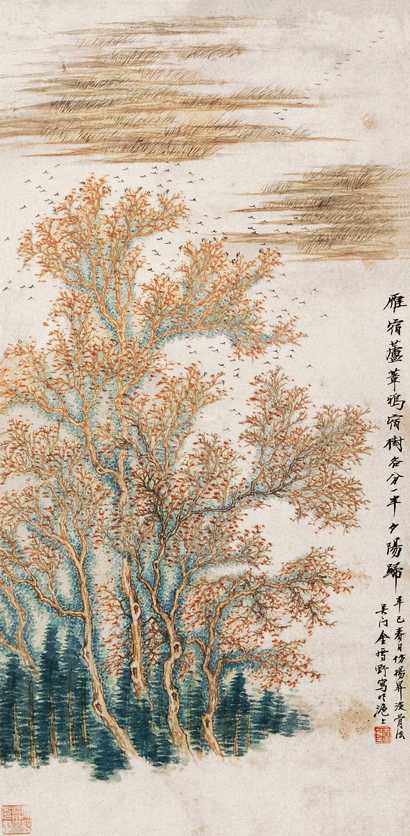 雁宿蘆葦鴉宿樹各分一半夕陽歸
辛巳春日仿楊昇没骨法
吴门金雪野寫於滬上